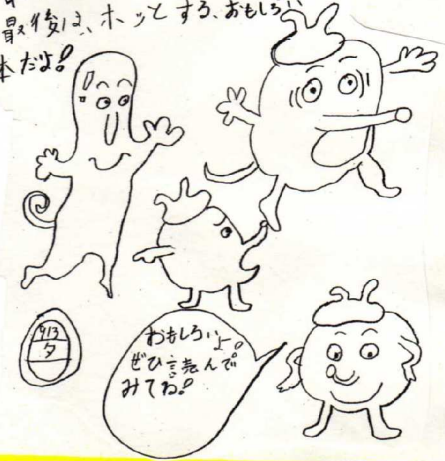 最後は、ホッとする、おもしろい
本だよ!
913
タ
おもしろいよ!
ぜひ読んで
みてね!